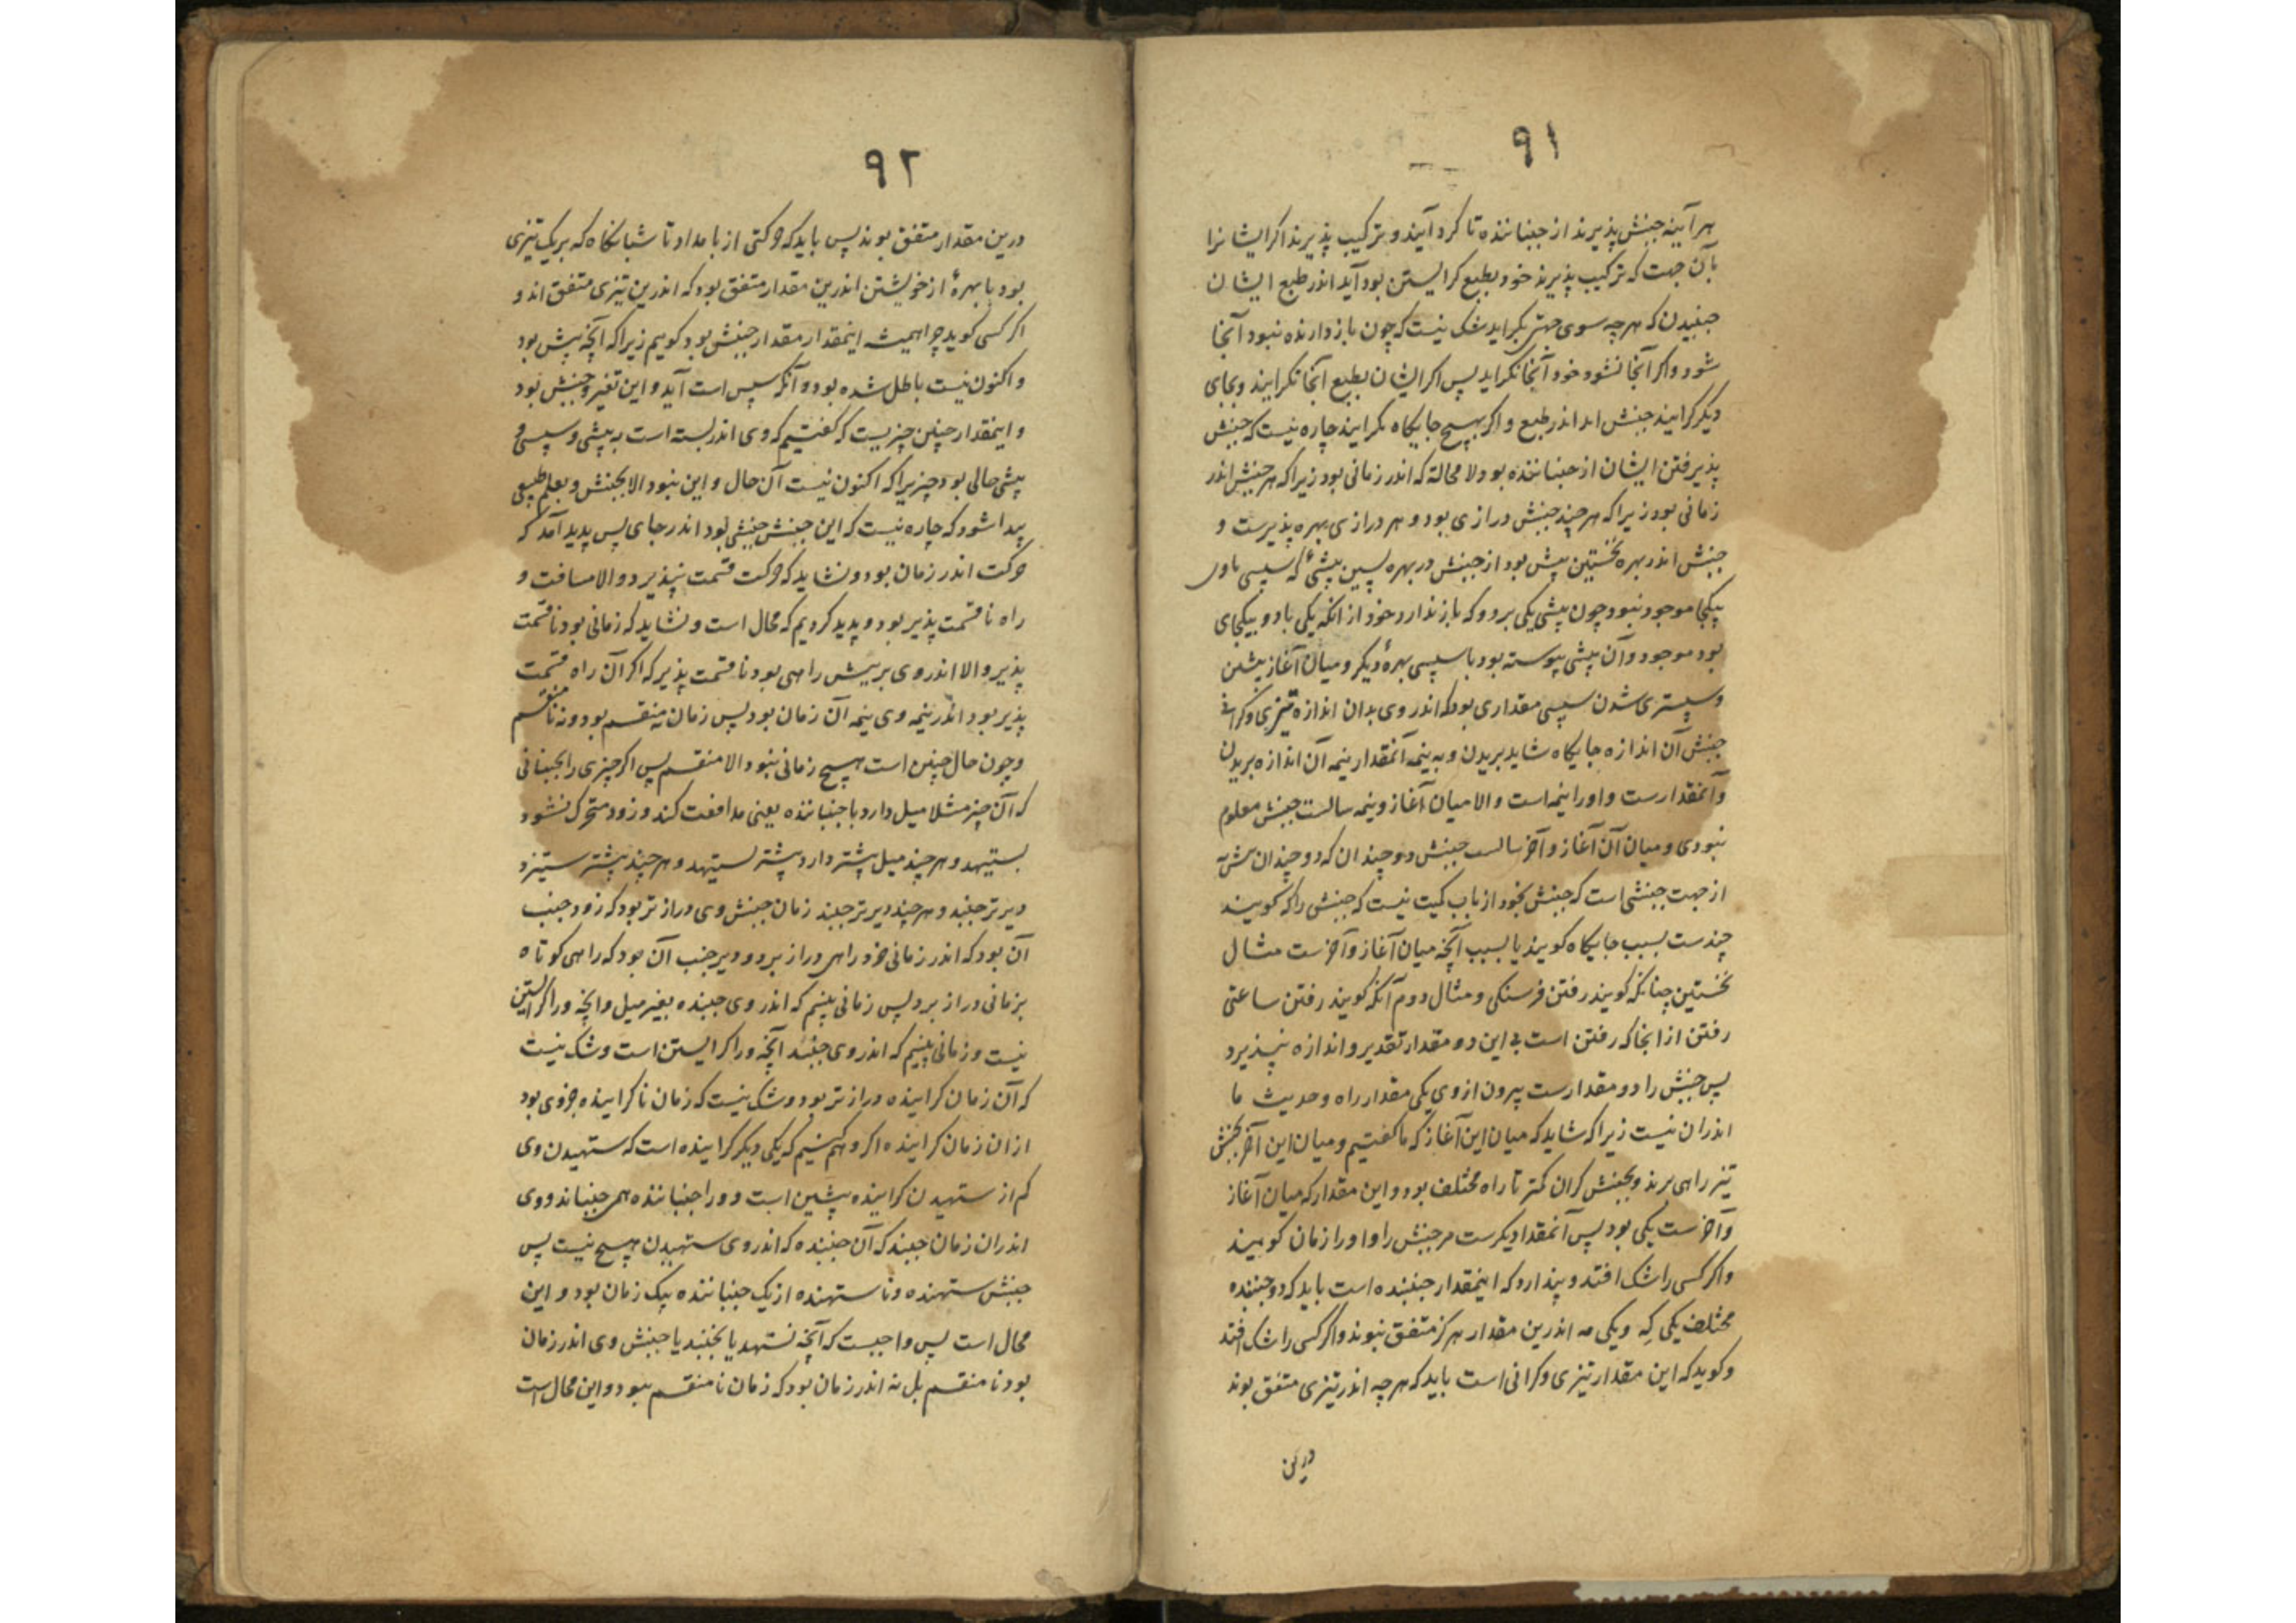 ۹۱
هر آینه جنبش پذیرند از جنباننده تا کرد آیند و ترکیب پذیرند اکر ایشانرا
بآن جهت که ترکیب پذیرند خود بطبع کرایستن بود آید اندر طبع ایشان
جنبیدن که هرچه سوی جهتی بکراید شک نیست که چون بازدارنده نبود آنجا
شود واکر آنجا نشود خود آنجا نکراید پس اکر ایشان بطبع آنجا نکرایند وبجای
دیکر کرایند جنبش اند اندر طبع واکر بهیچ جایکاه نکرایند چاره نیست که جنبش
پذیرفتن ایشان از جنباننده بود ولا محالة که اندر زمانی بود زیرا که هر جنبش اندر
زمانی بود زیرا که هر چند جنبش درازی بود و هر درازی بهره پذیرست و
جنبش اندر بهره نخستین پیش بود از جنبش در بهره پسین پیشئ که سپسی باوی
بیکجا موجود نبود چون پیشی یکی بر دو که باز ندارد خود از انکه یکی با دو بیکجای
بود موجود وآن پیشی پیوسته بود با سپسی بهرهٔ دیکر ومیان آغاز پیشین
وسپستری شدن سپسی مقداری بود که اندر وی بدان اندازه تیزی وکرانی
جنبش آن اندازه جایکاه شاید بریدن وبه نیمه آنمقدار نیمه آن اندازه بریدن
وآنمقدارست واورا نیمه است والا میان آغاز ونیمه جنبش معلوم
نبودی ومیان آن آغاز وآخر جنبش دو چندان که دو چندان
از جهت جنبشی است که جنبش بخود از باب کمیت نیست که جنبش را که کویند
چندست بسبب جایکاه کویند یا بسبب آنچه میان آغاز وآخرست مثال
نخستین چنانکه کویند رفتن فرسنکی ومثال دوم آنکه کویند رفتن ساعتی
رفتن از انجا که رفتن است بی این دو مقدار تقدیر واندازه نپذیرد
پس جنبش را دو مقدارست بیرون از وی یکی مقدار راه وحدیث ما
اندران نیست زیرا که شاید که میان این آغاز که ما کفتیم ومیان این آخر بجنبش
تیز راهی برند وبجنبش کران کمتر تا راه مختلف بود واین مقدار که میان آغاز
وآخرست یکی بود پس آنمقدار دیکرست مر جنبش را واورا زمان کویند
واکر کسی را شک افتد وپندارد که اینمقدار جنبنده است باید که دو جنبنده
مختلف یکی که ویکی مه اندرین مقدار هرکز متفق نبوند واکر کسی را شک افتد
وکوید که این مقدار تیزی وکرانی است باید که هرچه اندر تیزی متفق بوند
درین
۹۲
درین مقدار متفق بوند پس باید که حرکتی از بامداد تا شبانکاه که بر یک تیزی
بود با بهرهٔ از خویشتن اندرین مقدار متفق بود که اندرین تیزی متفق اند و
اکر کسی کوید چرا همیشه اینمقدار مقدار جنبش بود کویم زیرا که آنچه پیش بود
واکنون نیست باطل شده بود و آنکه سپس است آید واین تغیر وجنبش بود
واینمقدار چنین چیزیست که کفتیم که وی اندر بسته است به پیشی وسپسی و
پیشی حالی بود چیزیرا که اکنون نیست آن حال واین نبود الا بجنبش وبعلم طبیعی
پیدا شود که چاره نیست که این جنبش جنبشی بود اندر جای پس پدید آمد که
حرکت اندر زمان بود ونشاید که حرکت قسمت نپذیرد والا مسافت و
راه نا قسمت پذیر بود وپدید کردیم که محال است ونشاید که زمانی بود نا قسمت
پذیر والا اندر وی بریش راهی بود نا قسمت پذیر که اکر آن راه قسمت
پذیر بود اندر نیمه وی نیمه آن زمان بود پس زمان نه منقسم بود ونه نا منقسم
وچون حال چنین است هیچ زمانی نبود الا منقسم پس اکر چیزی را بجنبانی
که آن چیز مثلا میل دارد با جنباننده یعنی مدافعت کند وزود متحرک نشود
بستیهد وهر چند میل بیشتر دارد بیشتر بستیهد وهر چند بیشتر ستیزد
دیرتر جنبد وهر چند دیرتر جنبد زمان جنبش وی درازتر بود که زود جنب
آن بود که اندر زمانی خرد راهی دراز برد ودیر جنب آن بود که راهی کوتاه
بزمانی دراز برد پس زمانی بنهیم که اندر وی جنبنده بغیر میل وانچه ورا کرایستن
نیست وزمانی بنهیم که اندر وی جنبد آنچه ورا کرایستن است وشک نیست
که آن زمان کراینده درازتر بود وشک نیست که زمان ناکراینده جزوی بود
ازان زمان کراینده اکر وهم کنیم که یکی دیکر کراینده است که ستهیدن وی
کم از ستهیدن کراینده پیشین است وورا جنباننده همی جنباند ووی
اندران زمان جنبد که آن جنبنده که اندر وی ستهیدن هیچ نیست پس
جنبش ستهنده ونا ستهنده از یک جنباننده بیک زمان بود واین
محال است پس واجبست که آنچه نستهد یا بجنبد یا جنبش وی اندر زمان
بود نا منقسم بل نه اندر زمان بود که زمان نا منقسم نبود واین محال است